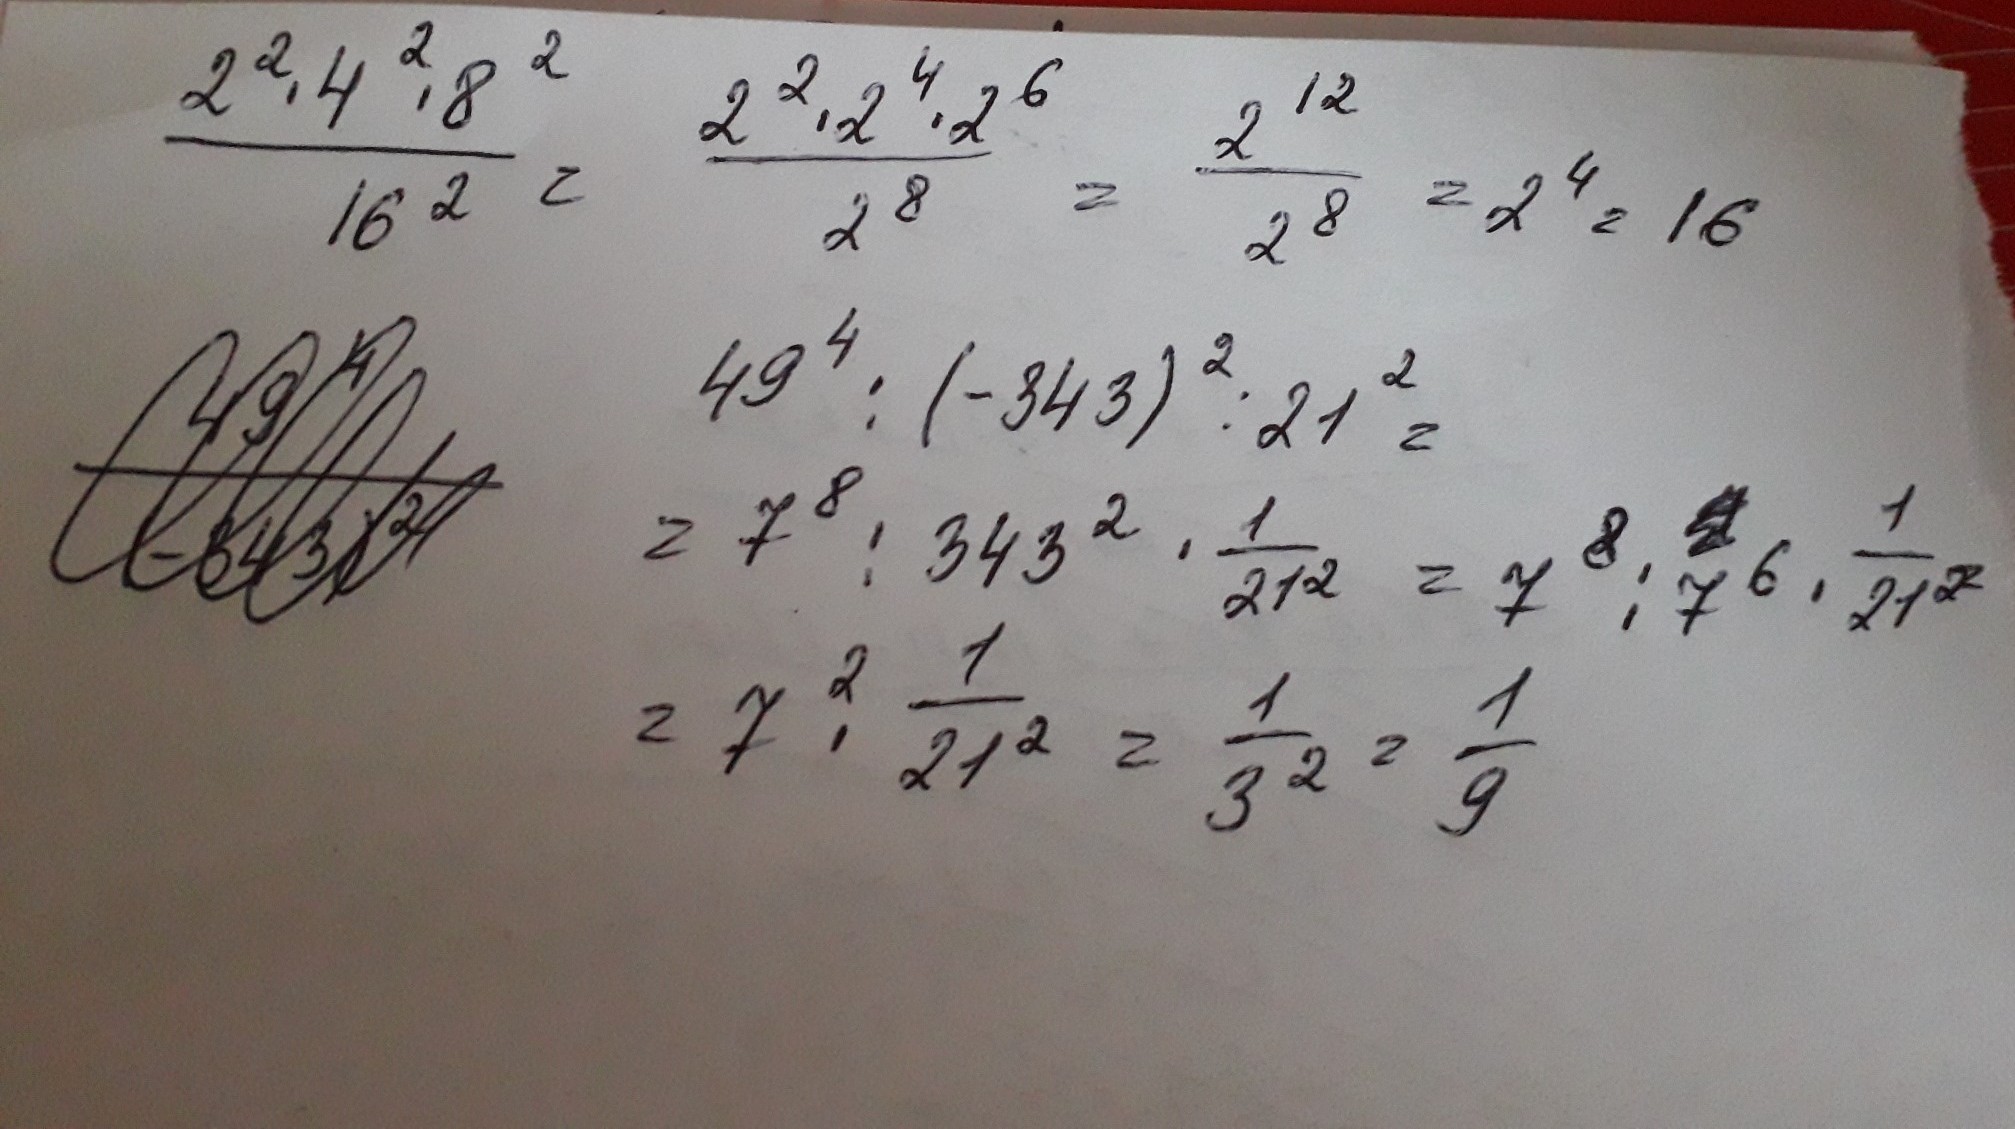 2²·4²·8² / 16² = 2²·2⁴·2⁶ / 2⁸ = 2¹² / 2⁸ = 2⁴ = 16
49⁴ / (-343)²
49⁴ : (-343)² : 21² =
= 7⁸ : 343² · 1/21² = 7⁸ : 7⁶ · 1/21²
= 7² · 1/21² = 1/3² = 1/9